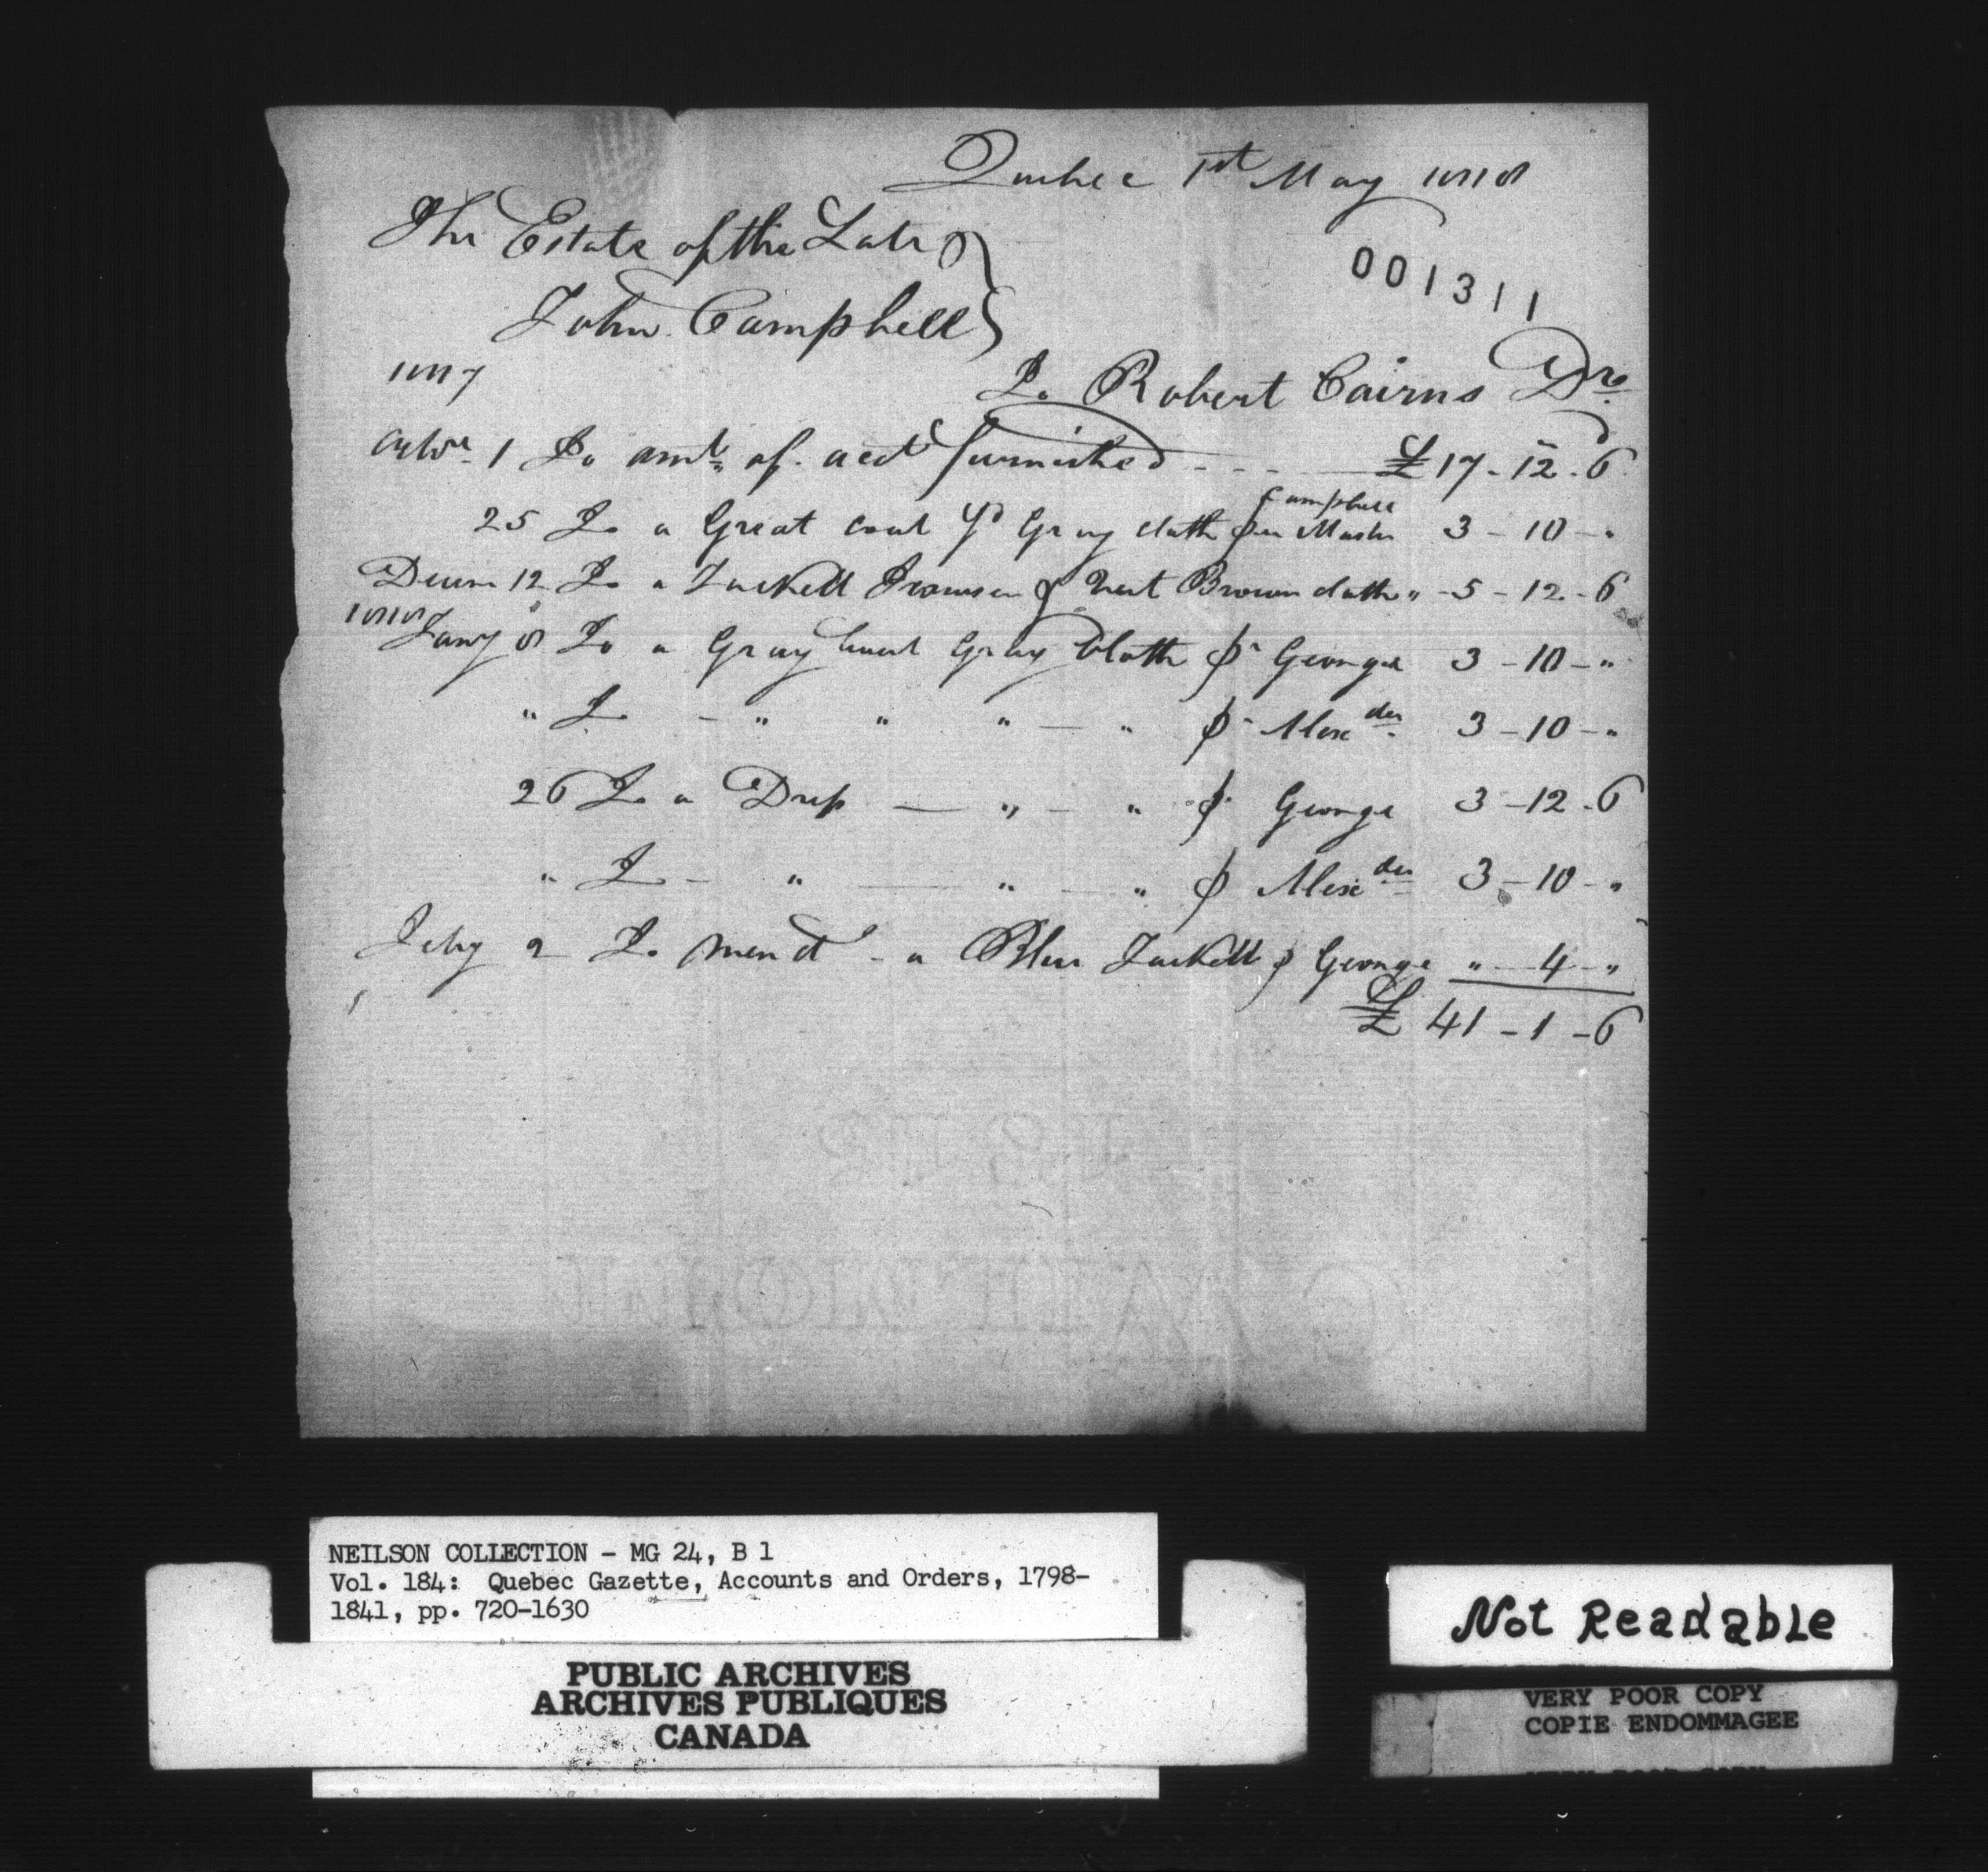 Quebec 1st May 1818
001311
The Estate of the Late
John Campbell
1817
To Robert Cairns Dr.
Octbr. 1 To amt. of acct furnished - - - £17-12-6
Campbell
25 To a Great coat Gray cloth per Master 3-10-"
Decem 12 To a Jackett Trowsers & Vest Brown cloth " -5-12-6
1818
Jany 8 To a Gray Coat Gray Cloth pr George 3-10-"
" To - " " " - " pr Alexder 3-10-"
26 To a Drep — " - " pr George 3-12-6
" To - " — " - " pr Alexder 3-10-"
Feby 2 To mend - a Blue Jackett pr George " -4-"
£ 41-1-6
NEILSON COLLECTION - MG 24, B 1
Vol. 184: Quebec Gazette, Accounts and Orders, 1798-
1841, pp. 720-1630
PUBLIC ARCHIVES
ARCHIVES PUBLIQUES
CANADA
Not Readable
VERY POOR COPY
COPIE ENDOMMAGEE